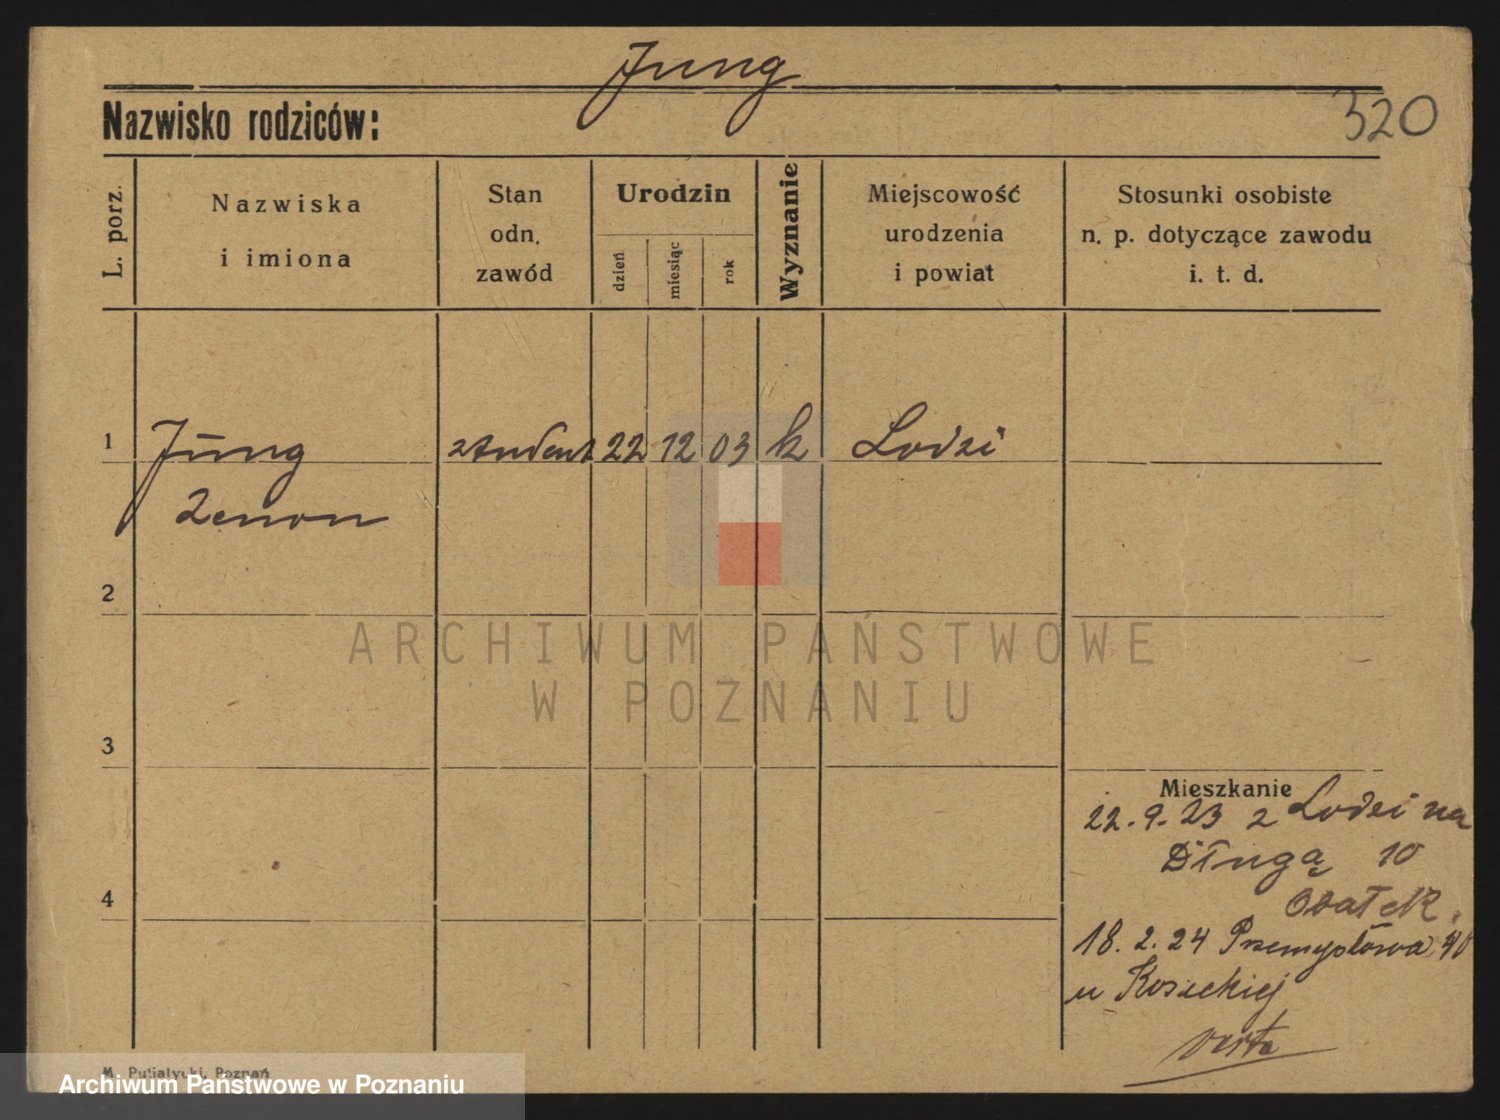 Jung
320
Nazwisko rodziców:
L. porz.
Nazwiska
i imiona
Stan
odn.
zawód
Urodzin
dzień
miesiąc
rok
Wyznanie
Miejscowość
urodzenia
i powiat
Stosunki osobiste
n. p. dotyczące zawodu
i. t. d.
1
Jung
student
22
12
03
k
Lodzi
Zenon
2
ARCHIWUM PAŃSTWOWE
W POZNANIU
3
Mieszkanie
22. 9. 23 z Lodzi na
Długą 10
4
18. 2. 24 Przemysłowa 40
u
M. Putiatycki, Poznań
Archiwum Państwowe w Poznaniu